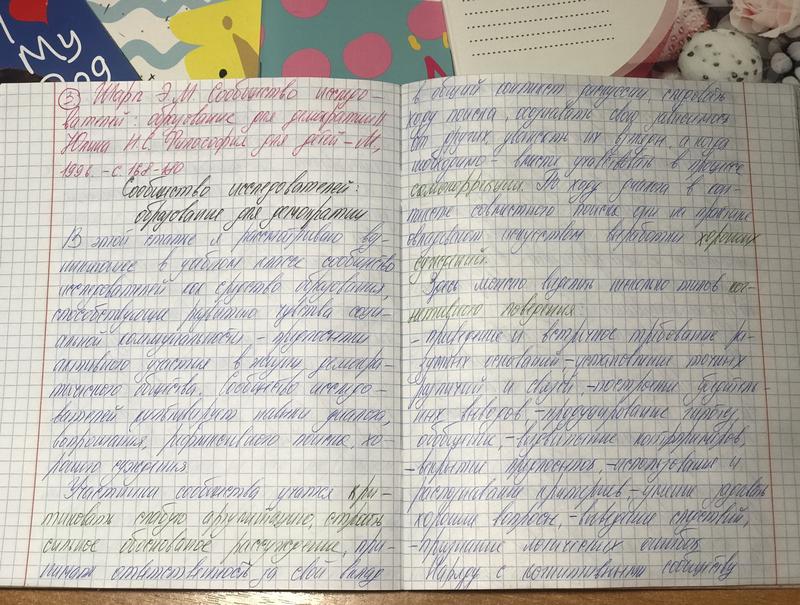 I
My
Dog
3 Шарп Э.М. Сообщество исследо-
вателей: образование для демократии //
Юлина Н.С. Философия для детей – М,
1996. – с. 168-180
Сообщество исследователей:
образование для демократии
В этой статье я рассматриваю воз-
никающее в учебном классе сообщество
исследователей как средство образования,
способствующие развитию чувства соци-
альной коммунальности, – предпосылки
активного участия в жизни демокра-
тического общества. Сообщество исследо-
вателей культивирует навыки диалога,
вопрошания, рефлексивного поиска, хо-
рошего суждения
Участники сообщества учатся кри-
тиковать слабую аргументацию, строить
сильное обоснованое рассуждение, при-
нимать ответственность за свой вклад
в общий контекст дискуссии, следовать
ходу поиска, осознавать свою зависимость
от других, уважать их взгляды, а когда
необходимо – вместе участвовать в процессе
самокоррекции. По ходу диалога в кон-
тексте совместного поиска они на практике
овладевают искусством выработки хороших
суждений.
Здесь можно выделить несколько типов ког-
нитивного поведения:
– приведение и встречное требование ра-
зумных оснований, – установление точных
различий и связей, – построение убедитель-
ных выводов, – продуцирование гипотез,
обобщение, – выдвижение контрпримеров,
– вскрытие предпосылок, – использование и
распознавание критериев, – умение задавать
хорошие вопросы, – выведение следствий,
– признание логических ошибок
Наряду с когнитивными сообществу